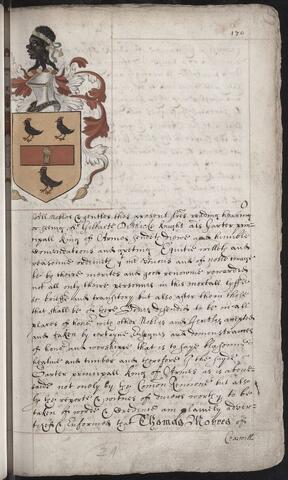 170
To all Nobles & gentles this present l'res reading hearing
or seeing Sr Gilberte Dethicke knight als Garter prin-
cipall King of Armes sendeth due and humble
comendacions and greting Equitie willeth and
reasonne ordeineth that men vertuous and of noble courage
be by theire merites and good renowne rewarded
not all only theire personnes in this mortall lyffe
so briefe and transitory but also after them those
that shalbe of theire bodies descended to be in all
places of honor with other Nobles and Gentles accepted
and taken by certayne Ensignes and demonstrances
of honor and worshippe that is to saye blazon
healme and timber and therefore I the sayde
Garter principall King of Armes as is above
saide not only by the Common Renowne but also
by the reporte & witnes of divers worthy to be
taken of worde & credence am playnely adver-
tised & enformed that Thomas Mores of
Coxwell